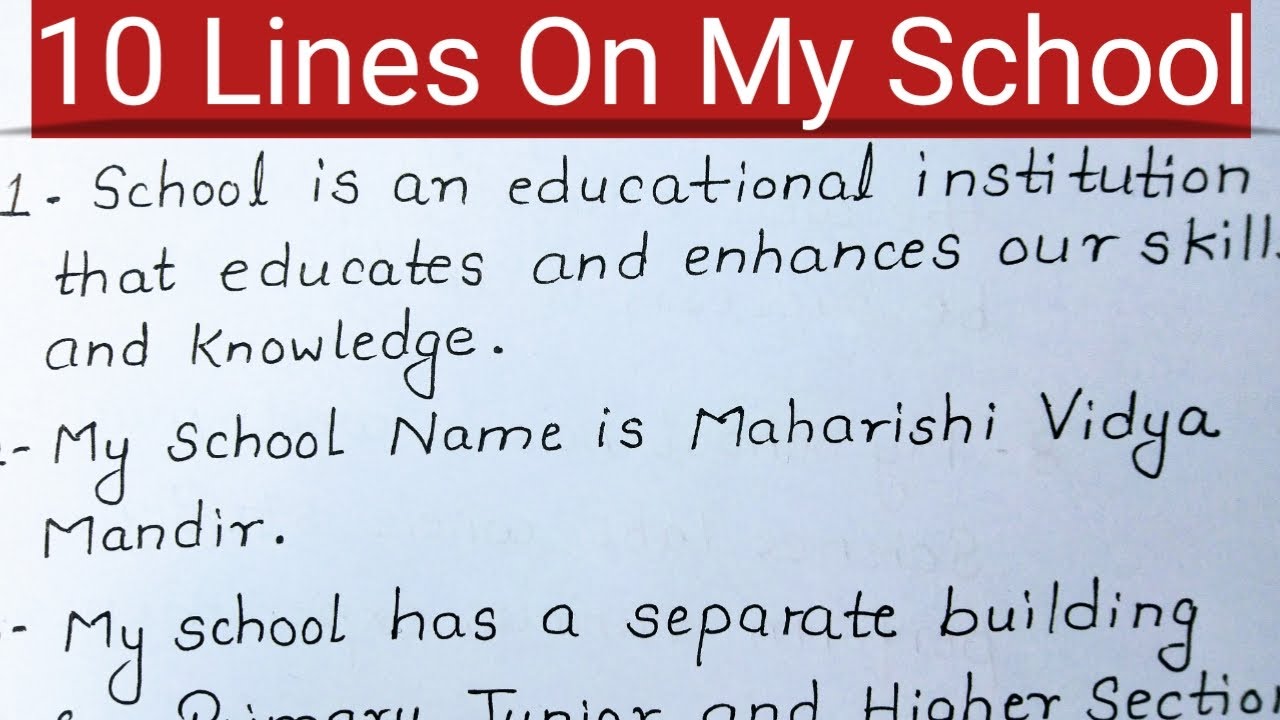 10 Lines On My School
1 - School is an educational institution
that educates and enhances our skills
and knowledge.
- My School Name is Maharishi Vidya
Mandir.
- My school has a separate building
Primary Junior and Higher Section